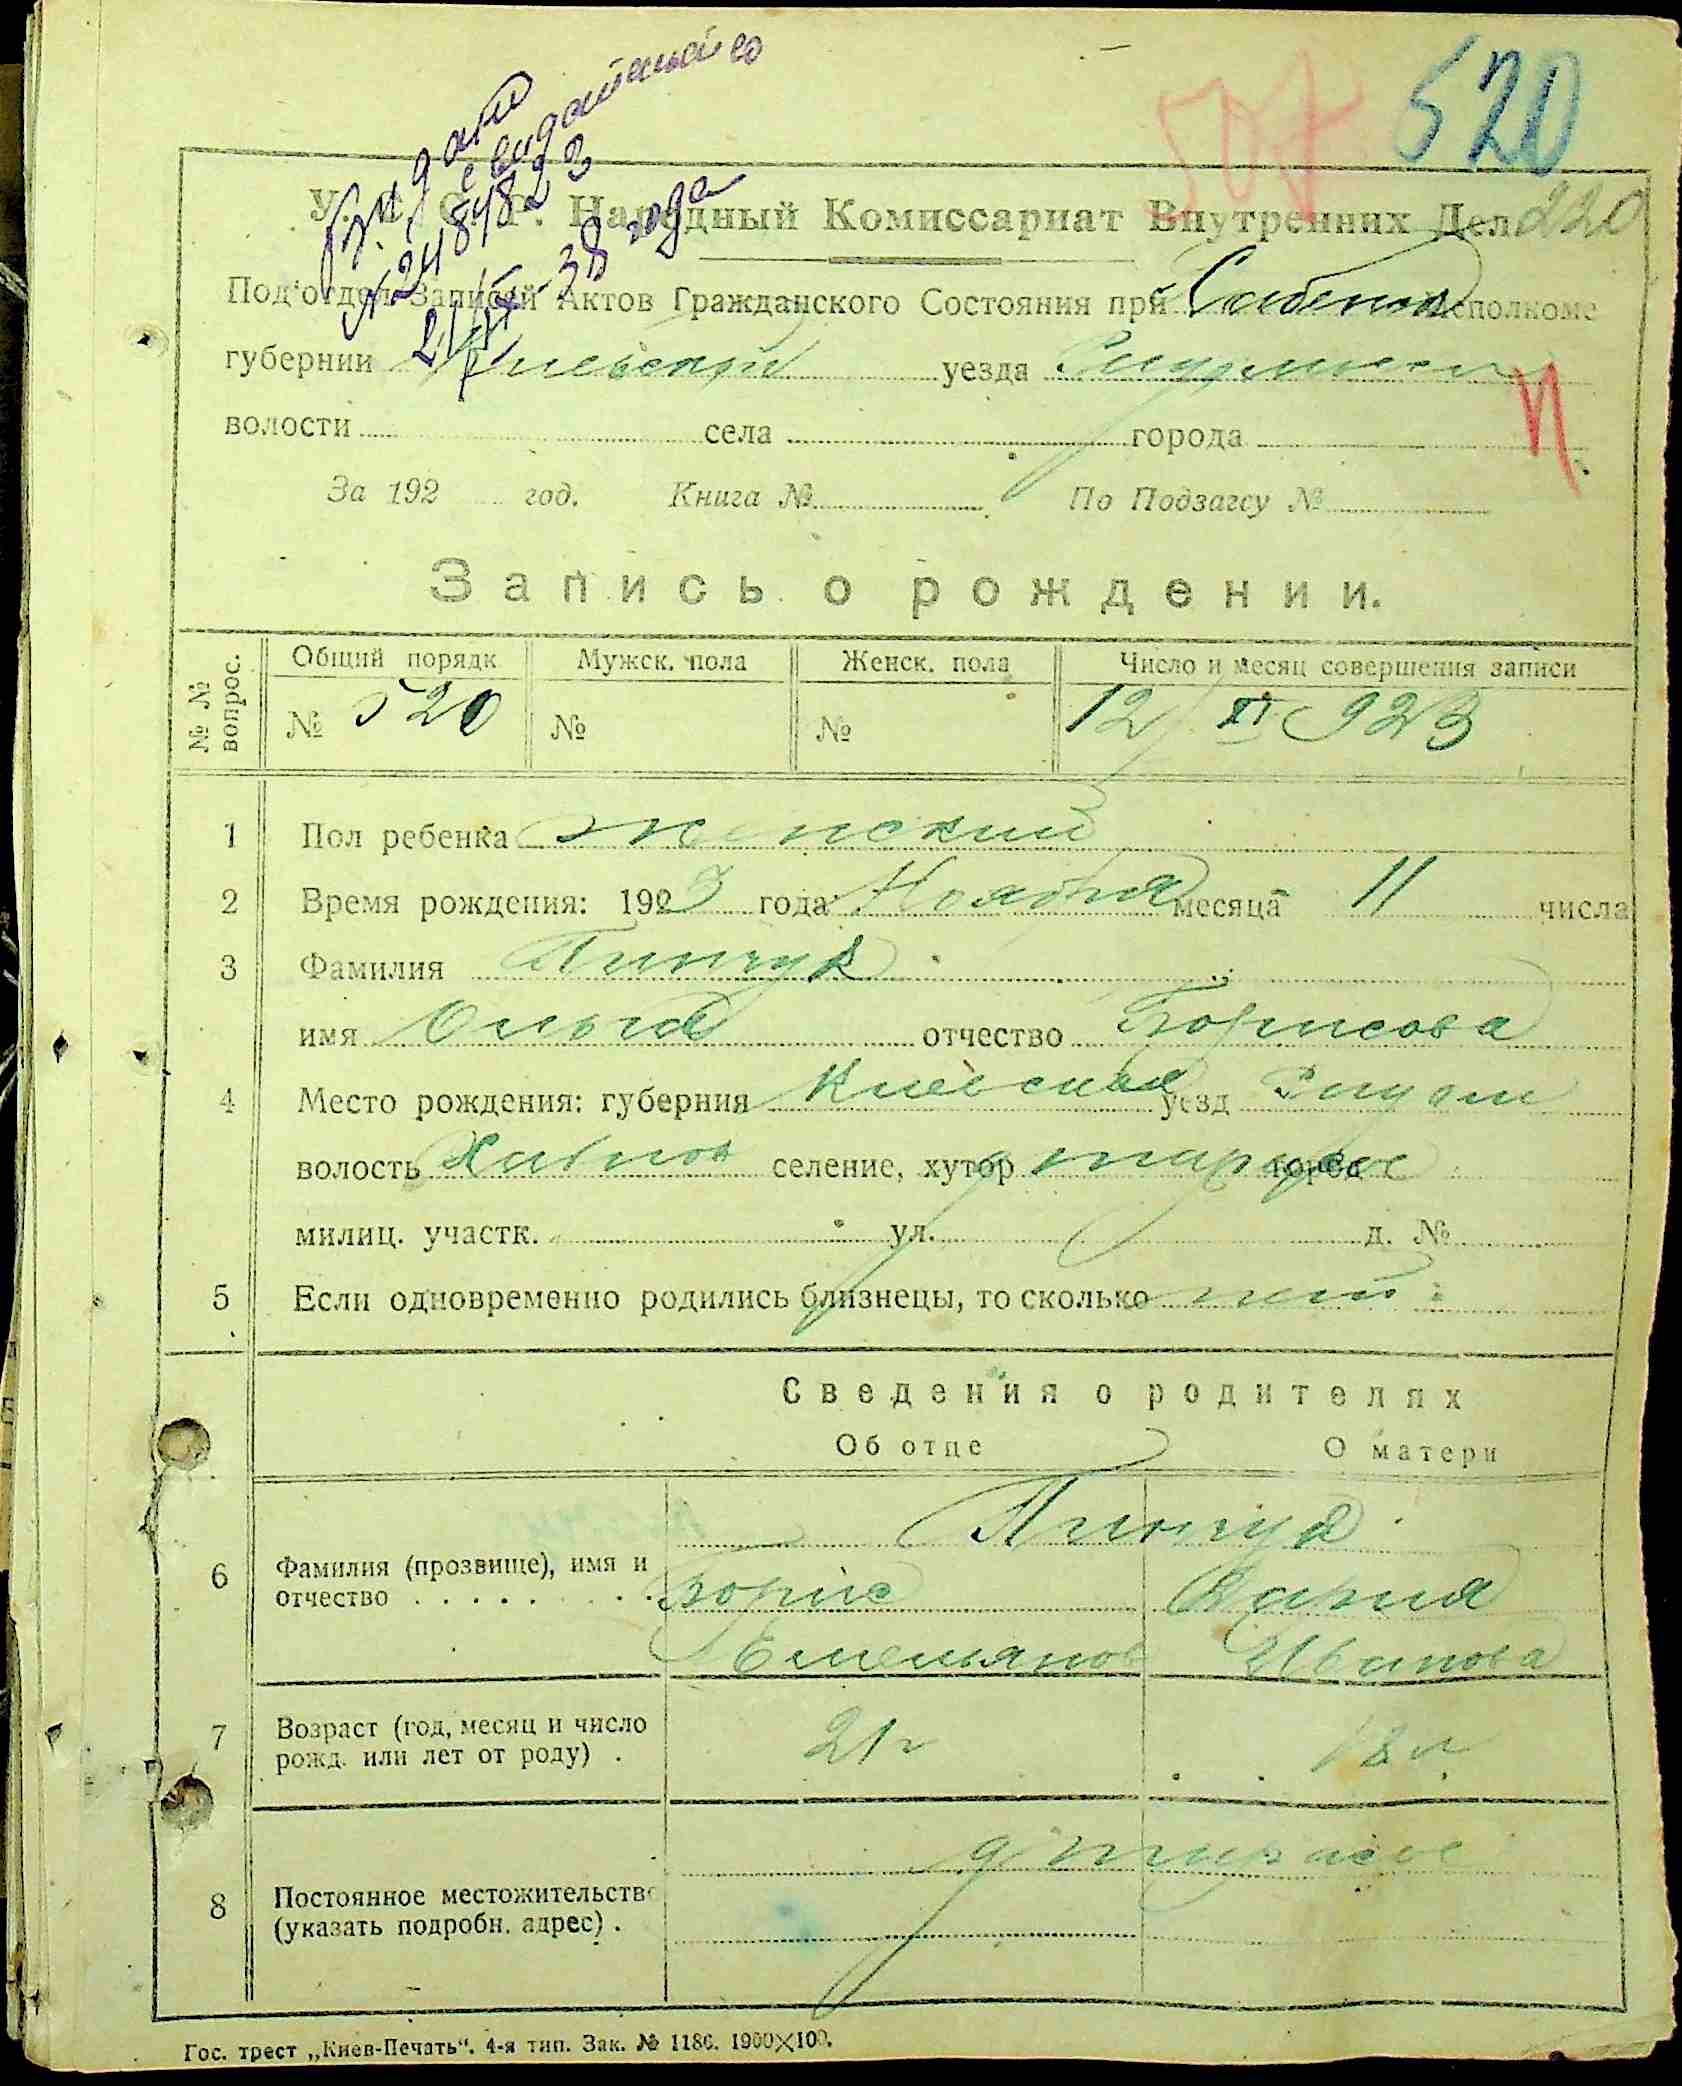 507 520
Выдано
свидетельство
№ 248823
года
У. С. С. Р. Народный Комиссариат Внутренних Дел 220
Под'отдел Записей Актов Гражданского Состояния при Хабенск Исполкоме
губернии Киевской уезда
волости села города
За 192 год. Книга № По Подзагсу №
Запись о рождении.
№ № вопрос. Общий порядк Мужск. пола Женск. пола Число и месяц совершения записи
№ 520 № № 12/XI 923
1 Пол ребенка женский
2 Время рождения: 1923 года Ноября месяца 11 числа
3 Фамилия Пинчук
имя Ольга отчество Борисова
4 Место рождения: губерния Киевская уезд
волость селение, хутор город
милиц. участк. ул. д. №
5 Если одновременно родились близнецы, то сколько нет
Сведения о родителях
Об отце О матери
Пинчук
6 Фамилия (прозвище), имя и отчество . . . . . . . . Борис Дария
Емельянов Иванова
7 Возраст (год, месяц и число рожд. или лет от роду) . 21 г 18 л
8 Постоянное местожительство (указать подробн. адрес) .
Гос. трест „Киев-Печать“. 4-я тип. Зак. № 1186. 1900×100.